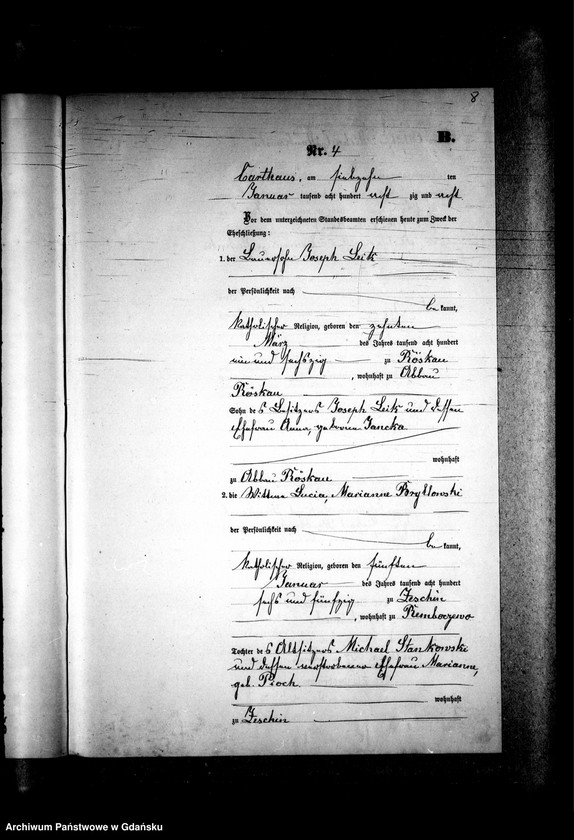 8
B.
Nr. 4
Carthaus, am siebzehn ten
Januar tausend acht hundert acht zig und acht
Vor dem unterzeichneten Standesbeamten erschienen heute zum Zweck der
Eheschließung:
1. der Bauersohn Joseph Leik
der Persönlichkeit nach
be kannt,
katholischer Religion, geboren den zehnten
März des Jahres tausend acht hundert
ein und sechszig zu Röskau
, wohnhaft zu Abbau
Röskau
Sohn des Besitzers Joseph Leik und dessen
Ehefrau Anna, geborene Jancka
wohnhaft
zu Abbau Röskau
2. die Wittwe Lucia, Marianne Bryllowski
der Persönlichkeit nach
be kannt,
katholischer Religion, geboren den fünften
Januar des Jahres tausend acht hundert
sechs und fünfzig zu Zeschin
, wohnhaft zu Remboczewo
Tochter des Altsitzers Michael Stankowski
und dessen verstorbener Ehefrau Marianne,
geb. Proch.
wohnhaft
zu Zeschin
Archiwum Państwowe w Gdańsku